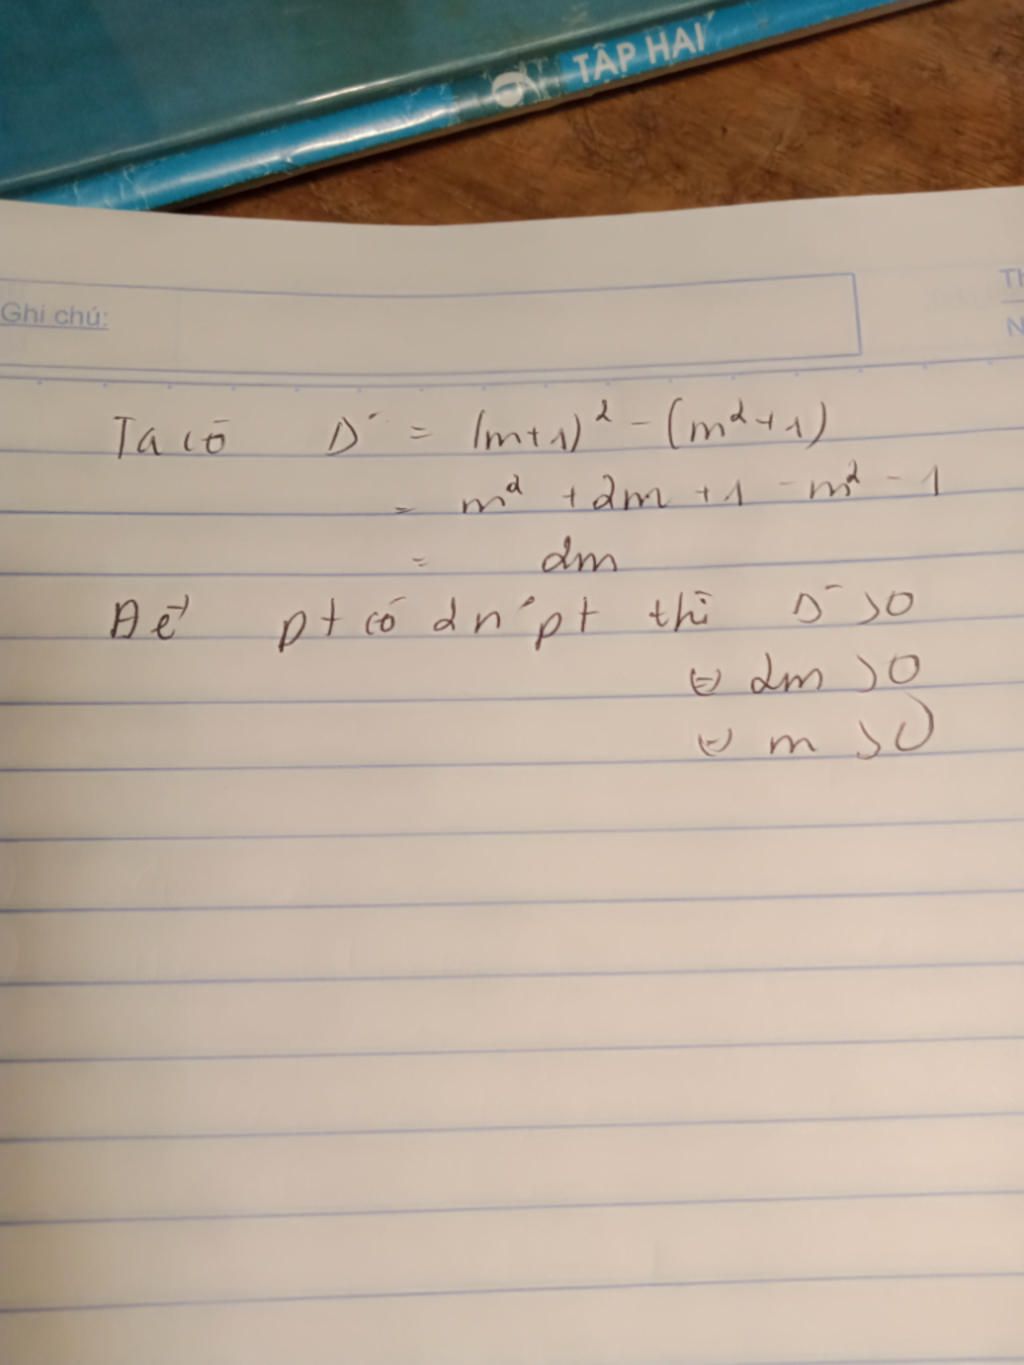 TẬP HAI
Ghi chú:
Th
N
Ta có Δ' = (m+1)² - (m²+1)
= m² + 2m + 1 - m² - 1
= 2m
Để pt có 2 n° pt thì Δ' > 0
⇔ 2m > 0
⇔ m > 0